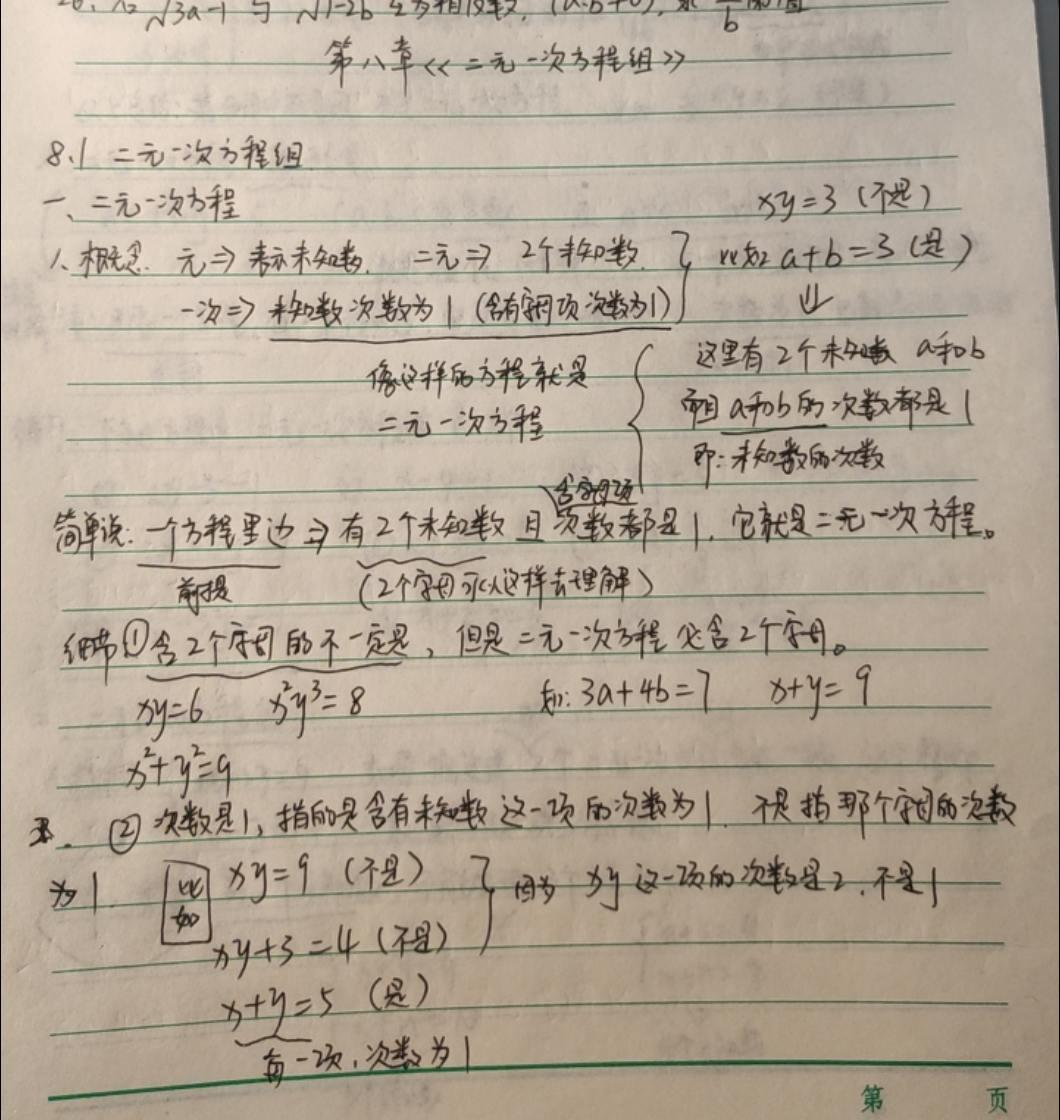 √3a-1 与 √1-2b 互为相反数, (a·b≠0), 求 b
第八章 << 二元一次方程组 >>
8.1 二元一次方程组
一、二元一次方程
xy=3 (不是)
1、概念. 元⇒表示未知数. 二元⇒ 2个未知数. 比如 a+b=3 (是)
一次⇒ 未知数次数为1 (含有字母项次数为1) ⇓
这里有2个未知数 a和b
像这样的方程就是
而且 a和b的次数都是1
二元一次方程
即: 未知数的次数
含字母项
简单说: 一个方程里边⇒有2个未知数 且 次数都是1, 它就是二元一次方程。
前提 (2个字母可以这样去理解)
细节①含2个字母的不一定是, 但是二元一次方程必含2个字母。
xy=6 x²y³=8 如: 3a+4b=7 x+y=9
x²+y²=9
② 次数是1, 指的是含有未知数这一项的次数为1. 不是指那个字母的次数
为1. 比如 xy=9 (不是) 因为 xy 这一项的次数是2, 不是1
xy+3=4 (不是)
x+y=5 (是)
每一项, 次数为1
第 页